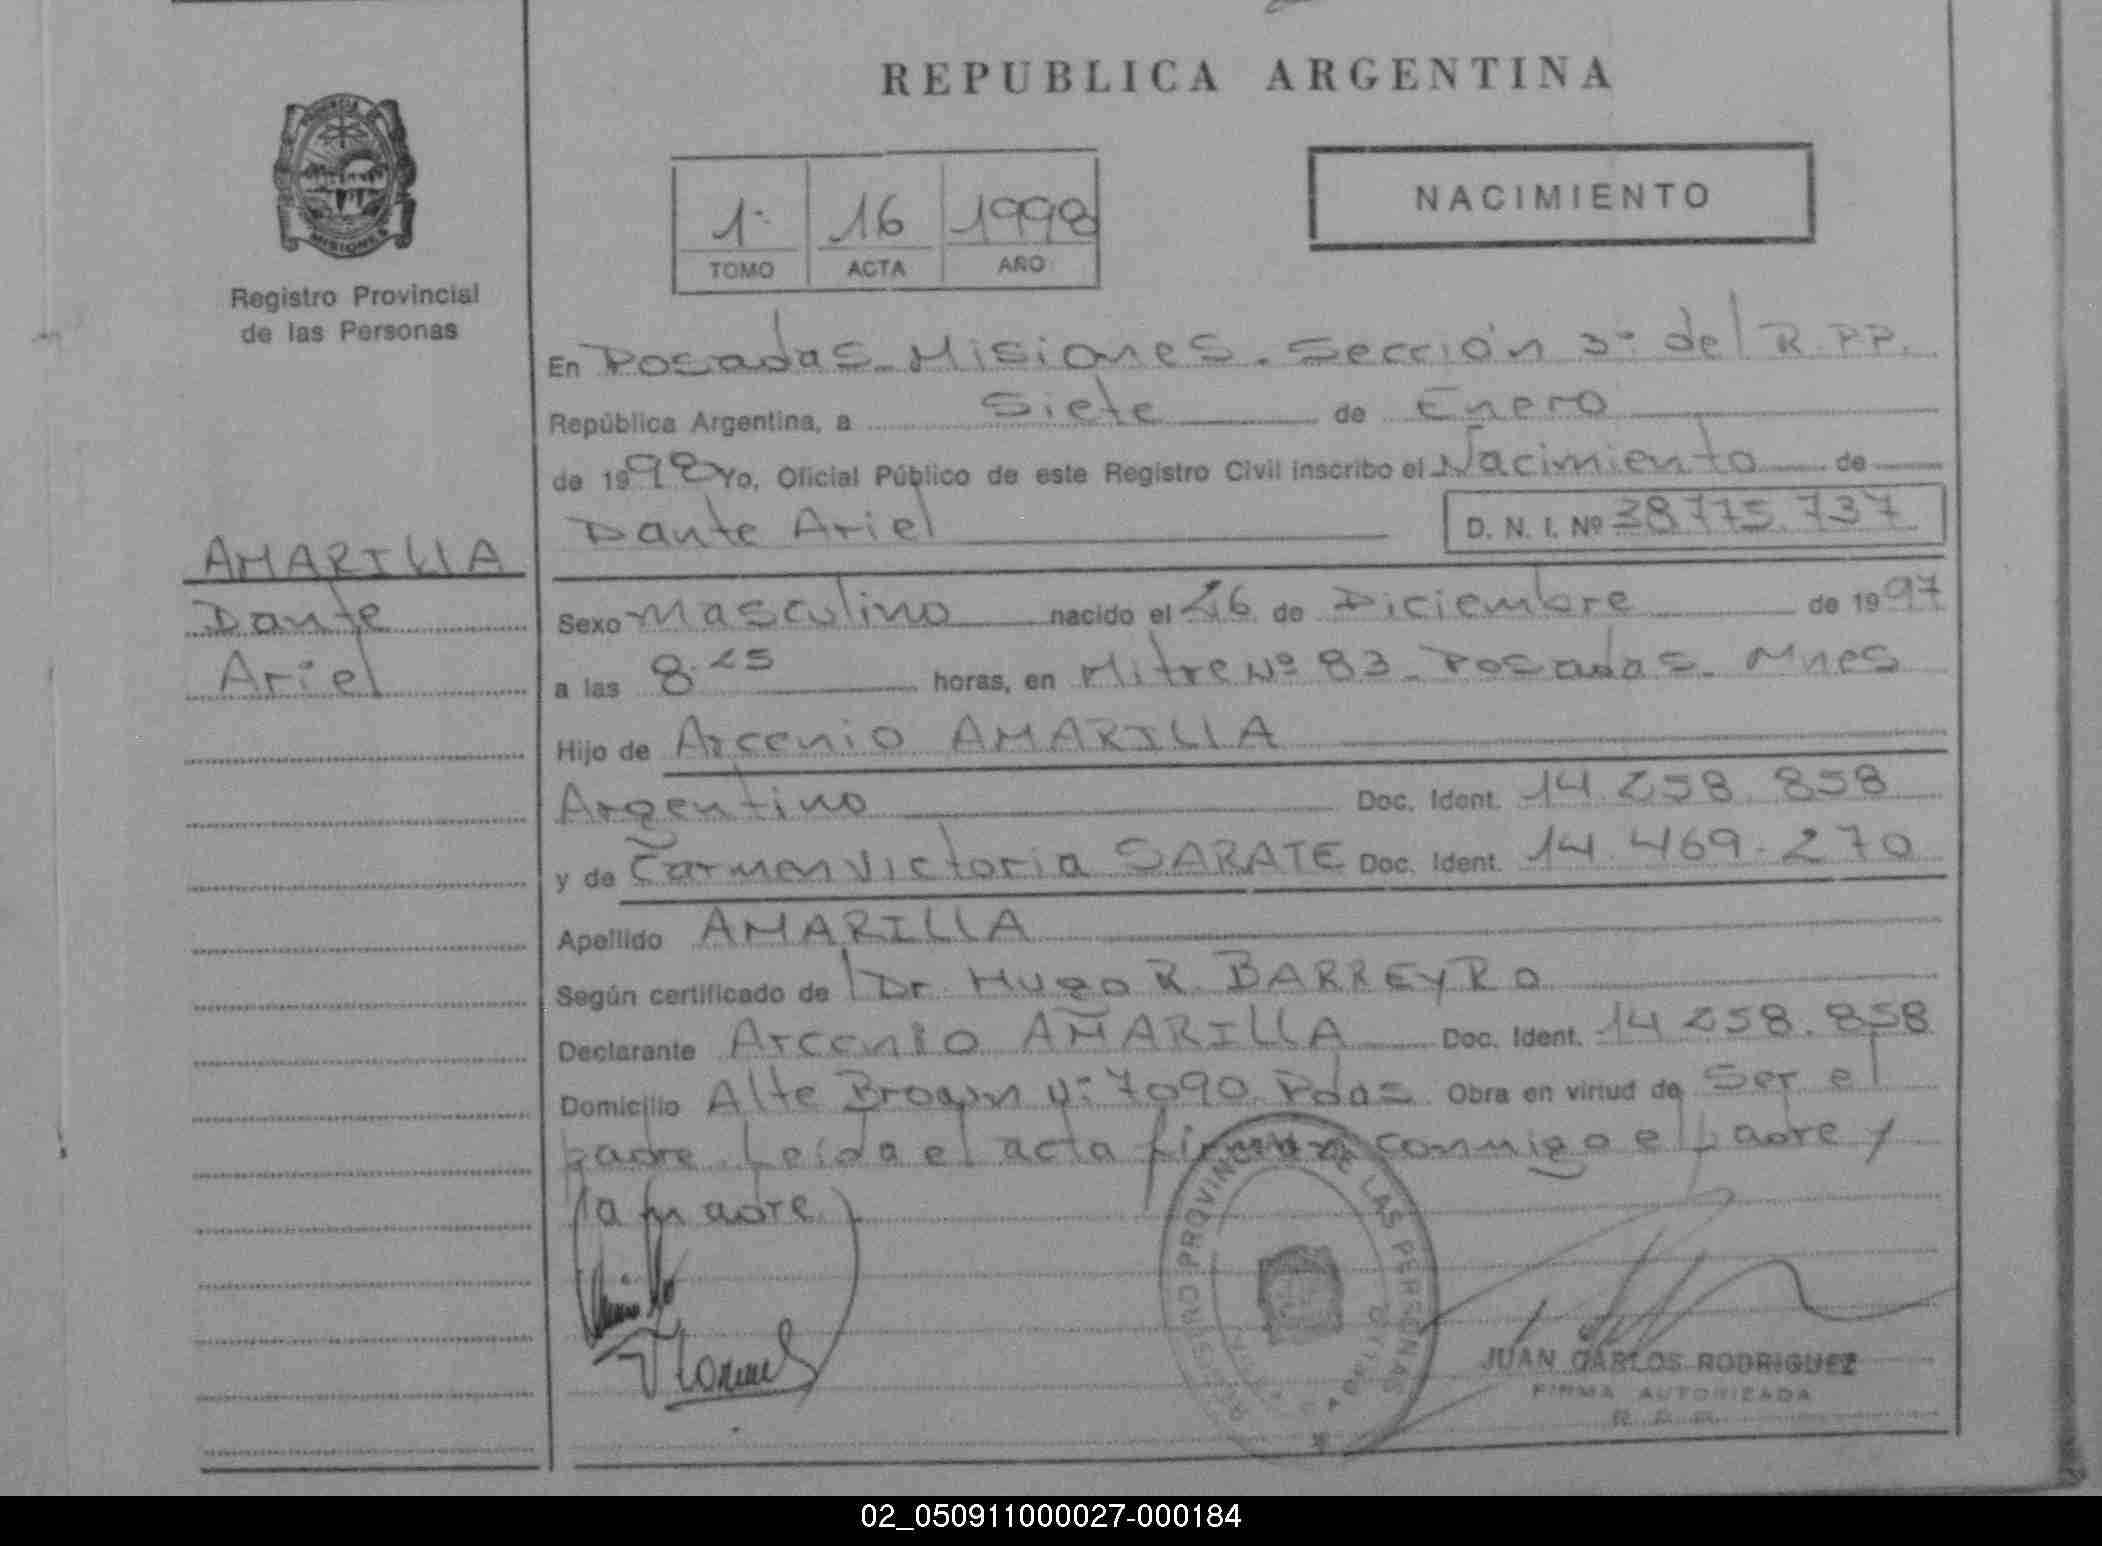 REPUBLICA ARGENTINA
NACIMIENTO
1º 16 1998
TOMO ACTA AÑO
MISIONES
Registro Provincial
de las Personas
En Posadas Misiones. Sección 3º del R.P.P.
República Argentina, a Siete de Enero
de 1998 Yo, Oficial Público de este Registro Civil inscribo el Nacimiento de
Dante Ariel D. N. I. Nº 38775.737
AMARILLA
Dante
Ariel
Sexo Masculino nacido el 26 de Diciembre de 1997
a las 8.25 horas, en Mitre Nº 83 - Posadas - Mnes
Hijo de Arcenio AMARILLA
Argentino Doc. Ident. 14.258.858
y de Carmen Victoria SARATE Doc. Ident. 14.469.270
Apellido AMARILLA
Según certificado de Dr Hugo R. BARREYRO
Declarante Arcenio AMARILLA Doc. Ident. 14.258.858
Domicilio Alte Brown Nº 7090 Pdas Obra en virtud de Ser el
padre. Leída el acta firman conmigo el padre y
la madre
REGISTRO PROVINCIAL DE LAS PERSONAS
JUAN CARLOS RODRIGUEZ
FIRMA AUTORIZADA
02_050911000027-000184